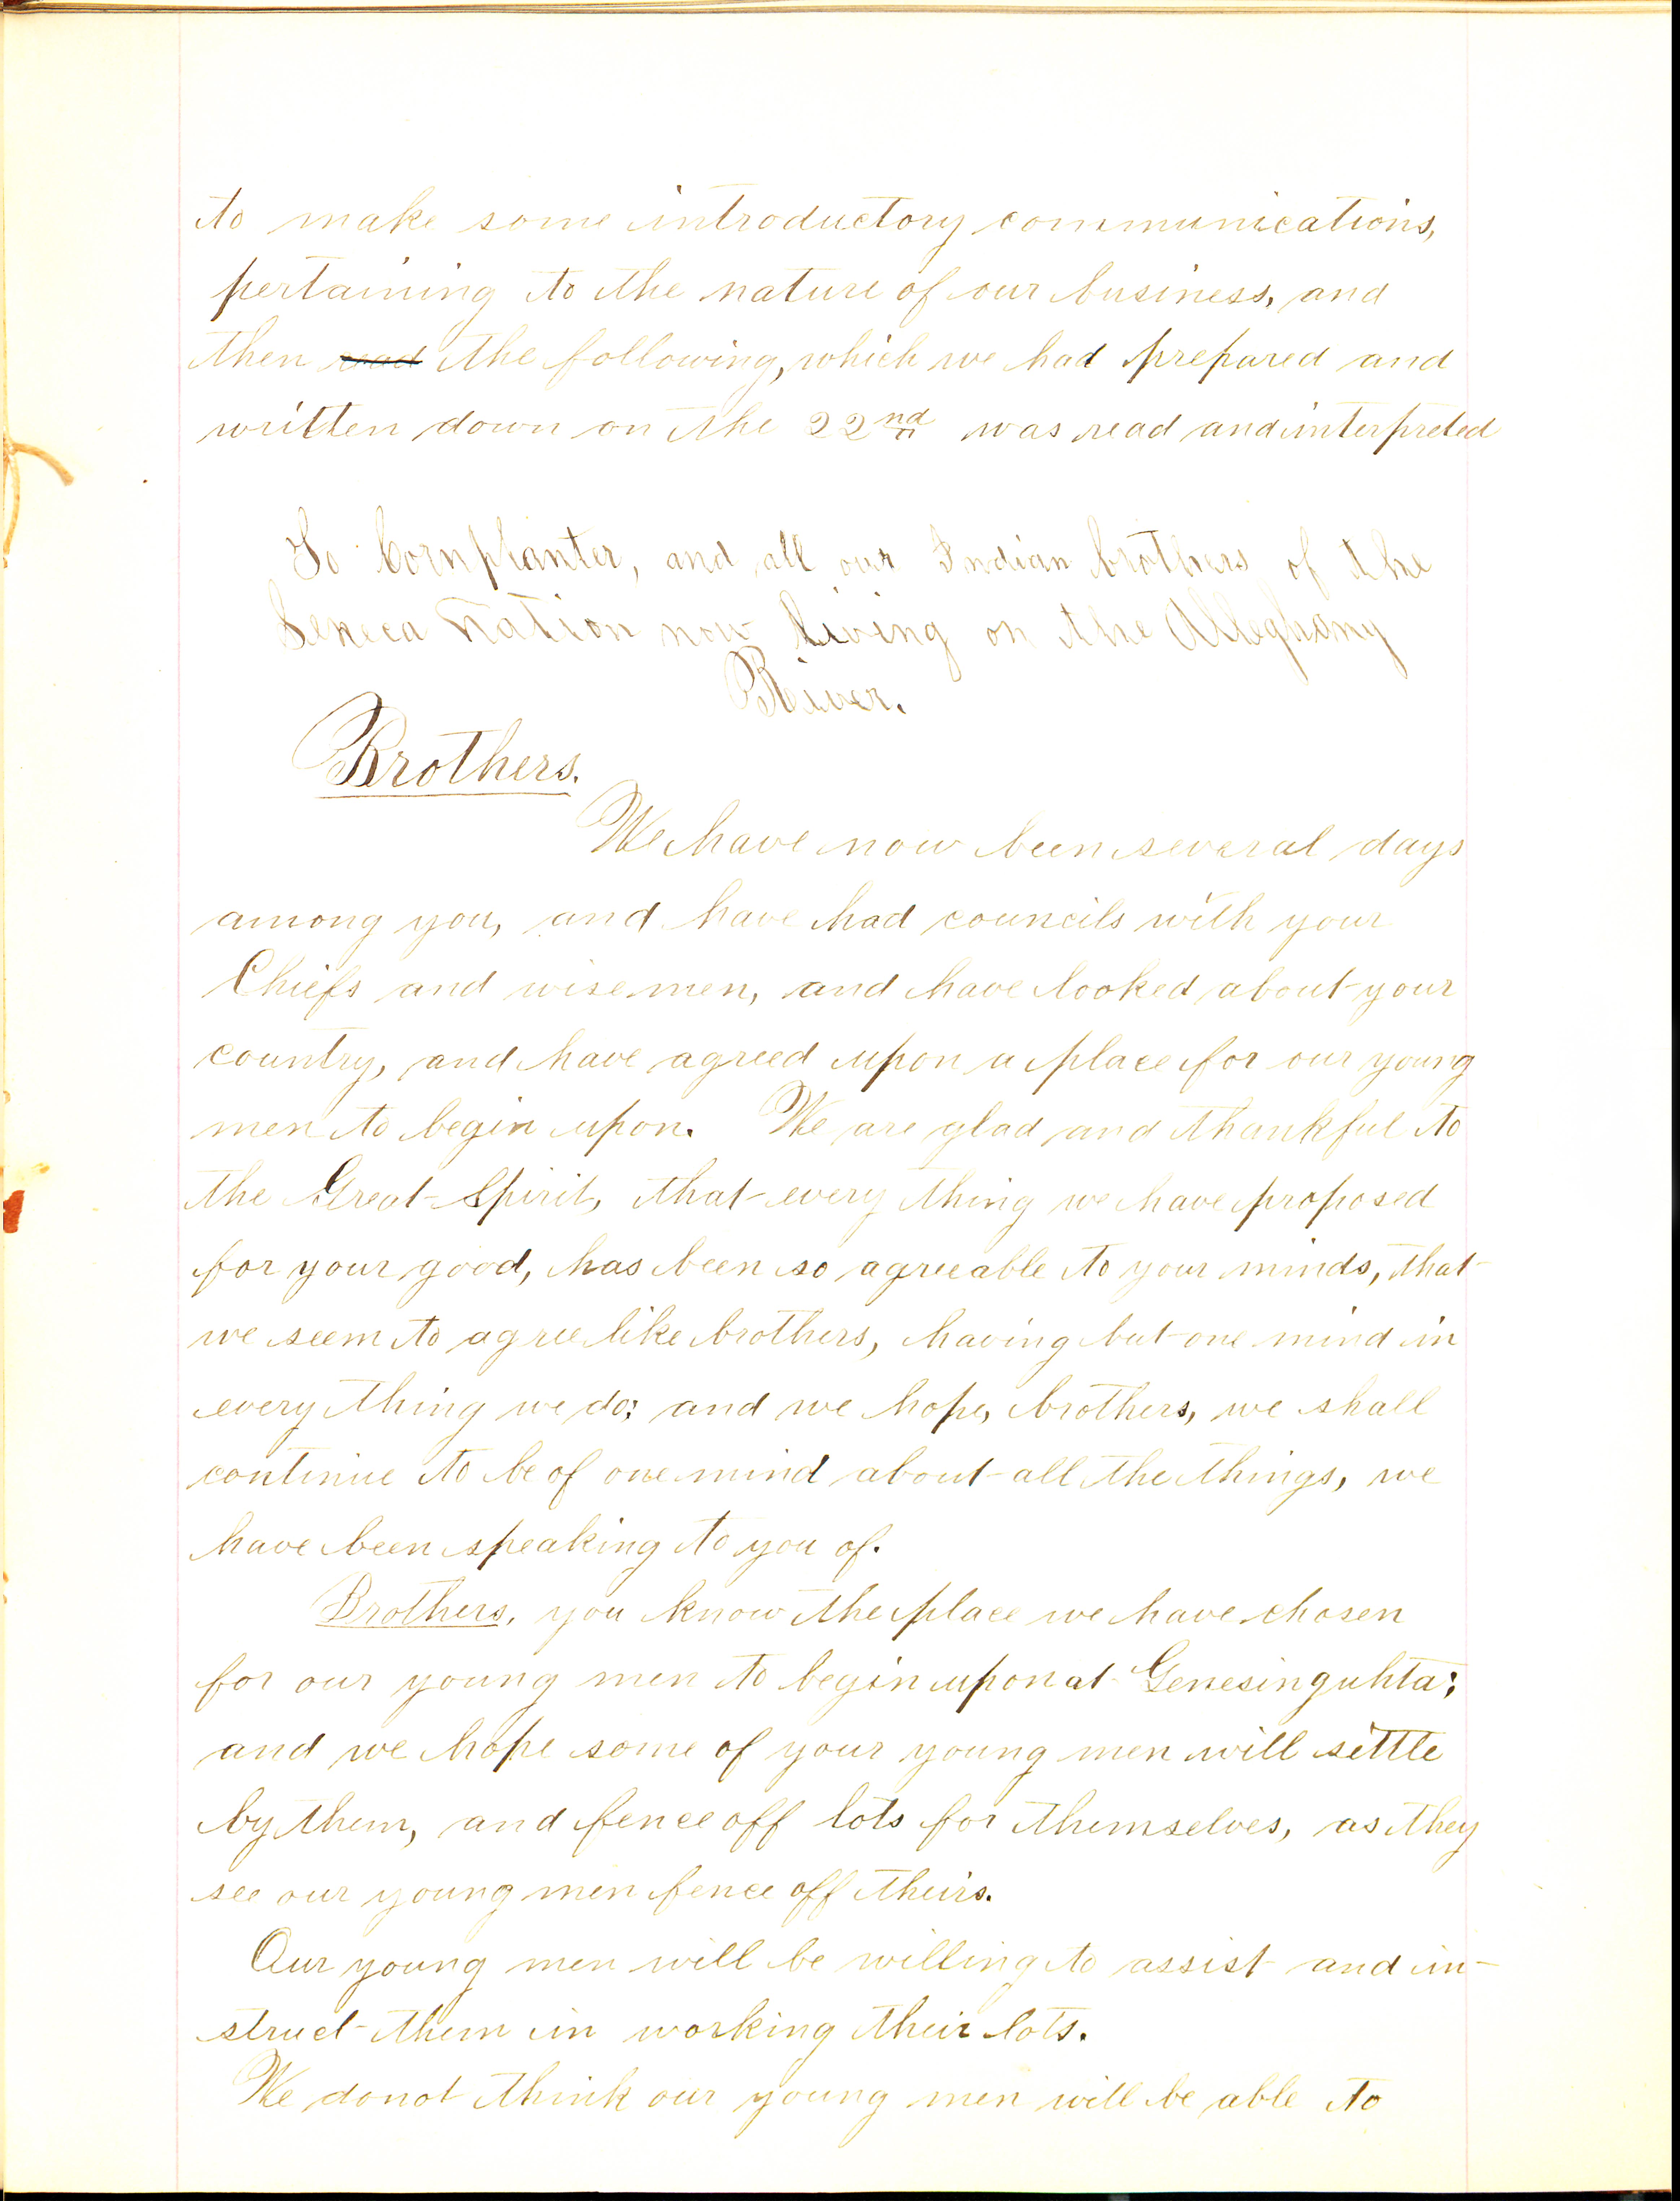 to make some introductory communications,
pertaining to the nature of our business, and
then read the following, which we had prepared and
written down on the 22nd was read and interpreted
To Cornplanter, and all our Indian brothers of the
Seneca Nation now living on the Alleghany
River.
Brothers.
We have now been several days
among you, and have had councils with your
Chiefs and wise men, and have looked about your
country, and have agreed upon a place for our young
men to begin upon. We are glad and thankful to
the Great Spirit, that every thing we have proposed
for your good, has been so agreeable to your minds, that
we seem to agree like brothers, having but one mind in
every thing we do; and we hope, brothers, we shall
continue to be of one mind about all the things, we
have been speaking to you of.
Brothers, you know the place we have chosen
for our young men to begin upon at Genesinguhta;
and we hope some of your young men will settle
by them, and fence off lots for themselves, as they
see our young men fence off theirs.
Our young men will be willing to assist and in-
struct them in working their lots.
We do not think our young men will be able to